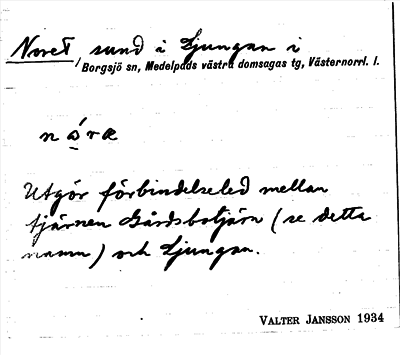 Noret, sund i Ljungan i
Borgsjö sn, Medelpads västra domsagas tg, Västernorrl. l.
Utgör förbindelseled mellan
tjärnen Gårdsbotjärn (se detta
namn) och Ljungan.
VALTER JANSSON 1934